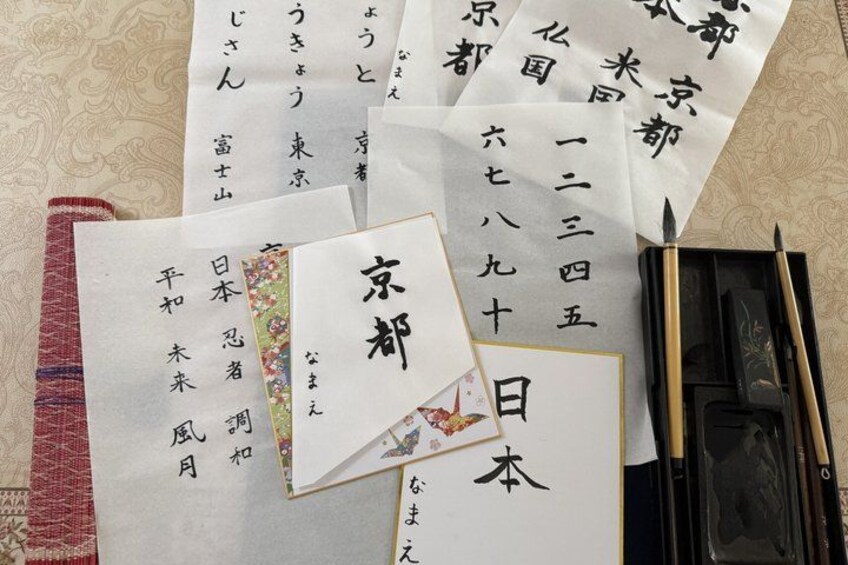 ょうと
京都
うきょう
東京
じさん
富士山
京都
なまえ
京都
本
京都
米国
仏国
一二三四五
六七八九十
日本 忍者 調和
平和 未来 風月
京都
なまえ
日本
なまえ